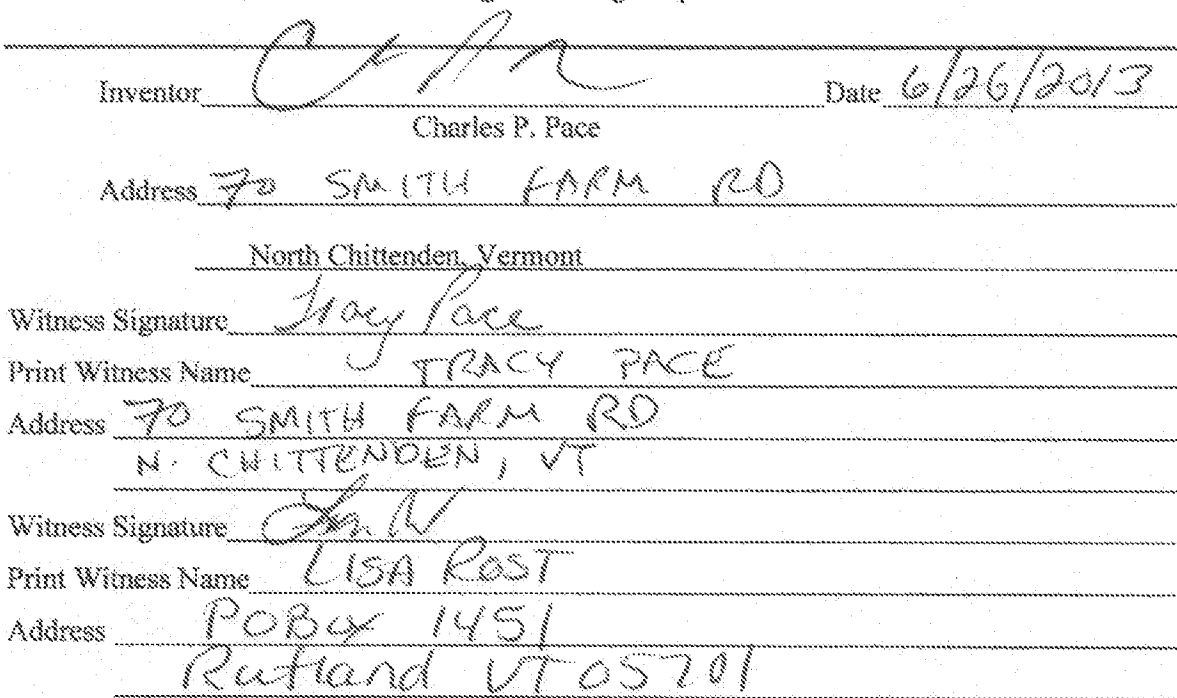 Inventor Date 6/26/2013
Charles P. Pace
Address 70 SMITH FARM RD
North Chittenden, Vermont
Witness Signature Tracy Pace
Print Witness Name TRACY PACE
Address 70 SMITH FARM RD
N. CHITTENDEN, VT
Witness Signature
Print Witness Name LISA ROST
Address PO Box 1451
Rutland VT 05701